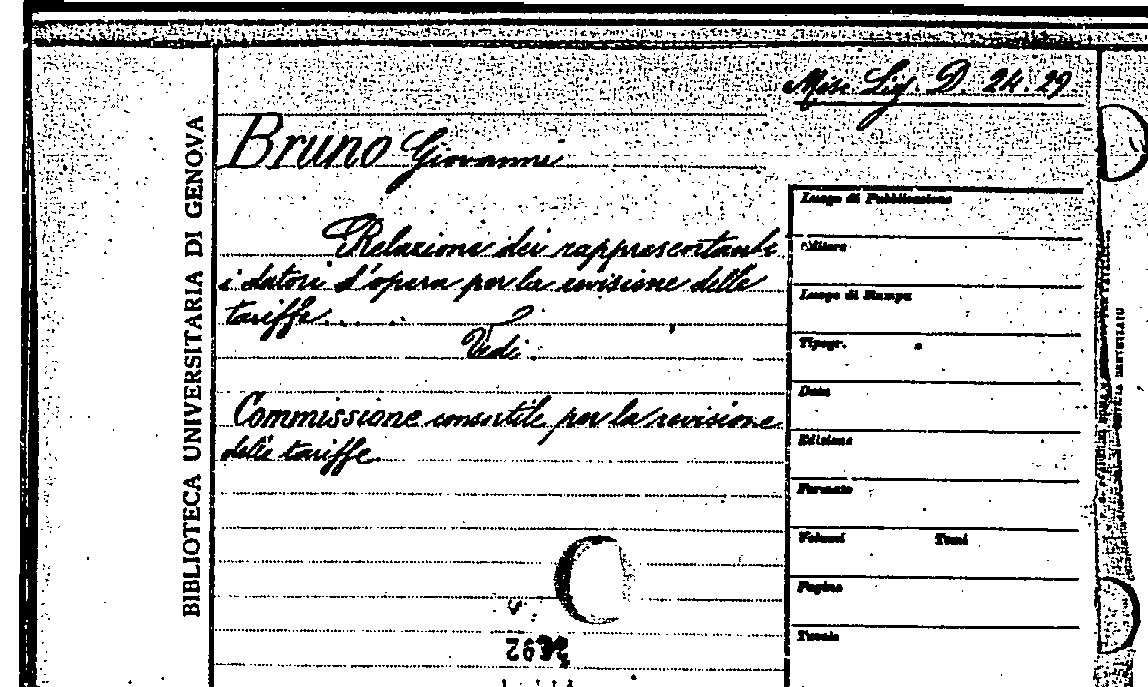 Misc. Lig. D. 24. 29
Bruno Giovanni
Relazione dei rappresentanti
i datori d'opera per la revisione delle
tariffe....
Vedi:
Commissione consortile per la revisione
delle tariffe.
BIBLIOTECA UNIVERSITARIA DI GENOVA
Luogo di Pubblicazione
Editore
Luogo di Stampa
Tipogr.
Data
Edizione
Formato
Volumi Tomi
Pagine
Tavole